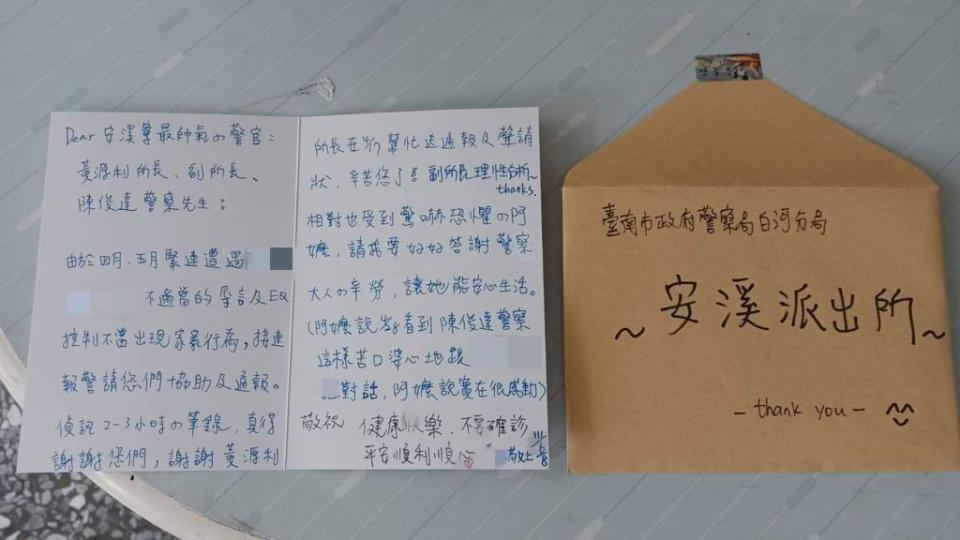 Dear 安溪寮最帥氣の警官：
黃源利所長、副所長、
陳俊達警察先生：
由於四月、五月緊連遭遇
不適當的辱言及EQ
控制不當出現家暴行為，接連
報警請您們協助及通報。
偵訊2-3小時の筆錄，真得
謝謝您們，謝謝黃源利
所長在 幫忙送通報及聲請
狀，辛苦您了！副所長理性分析~
thanks.
相對也受到驚嚇恐懼の阿
嬤，請我要好好答謝警察
大人の辛勞，讓她能安心生活。
(阿嬤說 看到陳俊達警察
這樣苦口婆心地跟
對話，阿嬤說實在很感動)
敬祝 健康快樂、不要確診
平安順利順心
敬上
臺南市政府警察局白河分局
~安溪派出所~
- thank you -